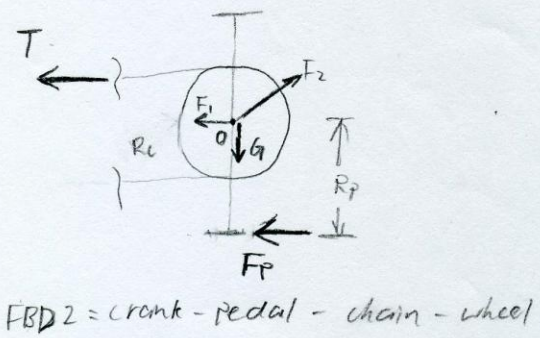 T
F2
F1
O
G
Rc
Rp
Fp
FBD2 = crank - pedal - chain - wheel